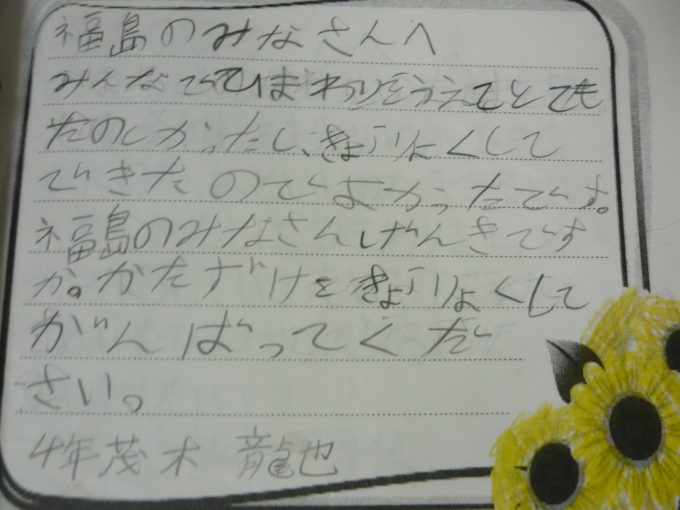 福島のみなさんへ
みんなでひまわりをうえてとても
たのしかったし、きょうりょくして
できたのでよかったです。
福島のみなさんげんきです
か。かたずけをきょうりょくして
がんばってくだ
さい。
4年茂木 龍也